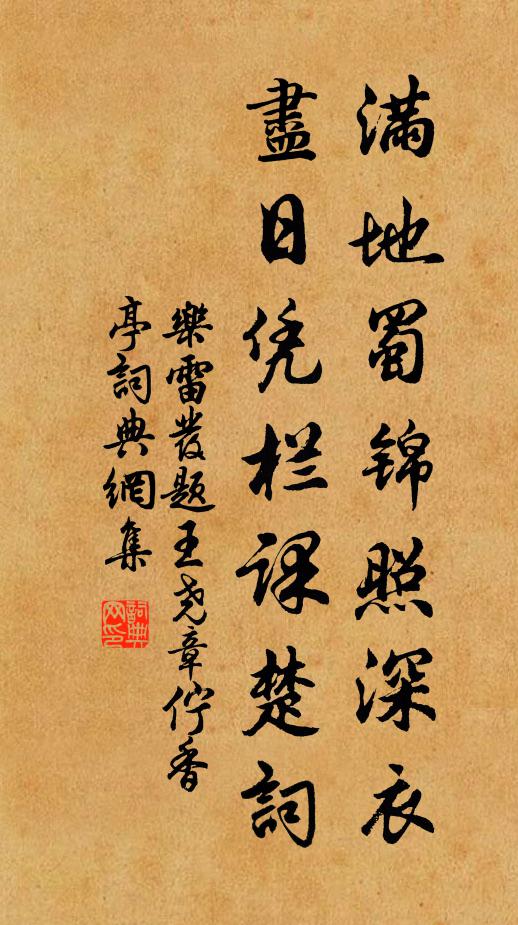 滿地蜀锦照深衣
盡日凭栏课楚詞
樂雷發题王尧章佇香
亭詞典網集
詞典
网印